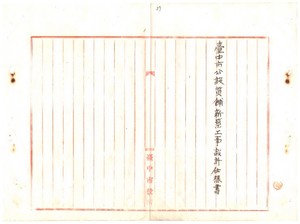 臺中市公設質舖新築工事設計仕樣書
臺中市役所
17